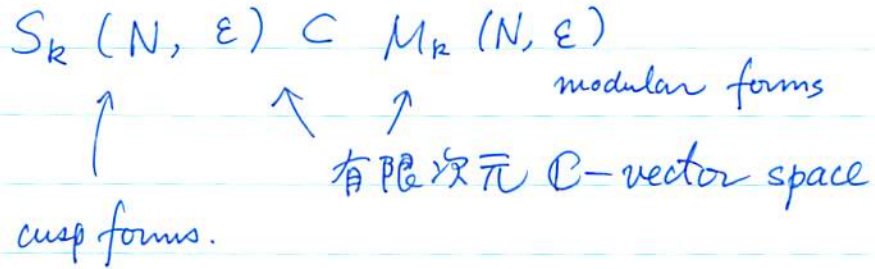 S_k (N, ε) ⊂ M_k (N, ε)
modular forms
有限次元 ℂ-vector space
cusp forms.